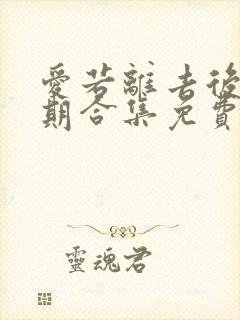 愛若離去後
期合集免費
靈魂君